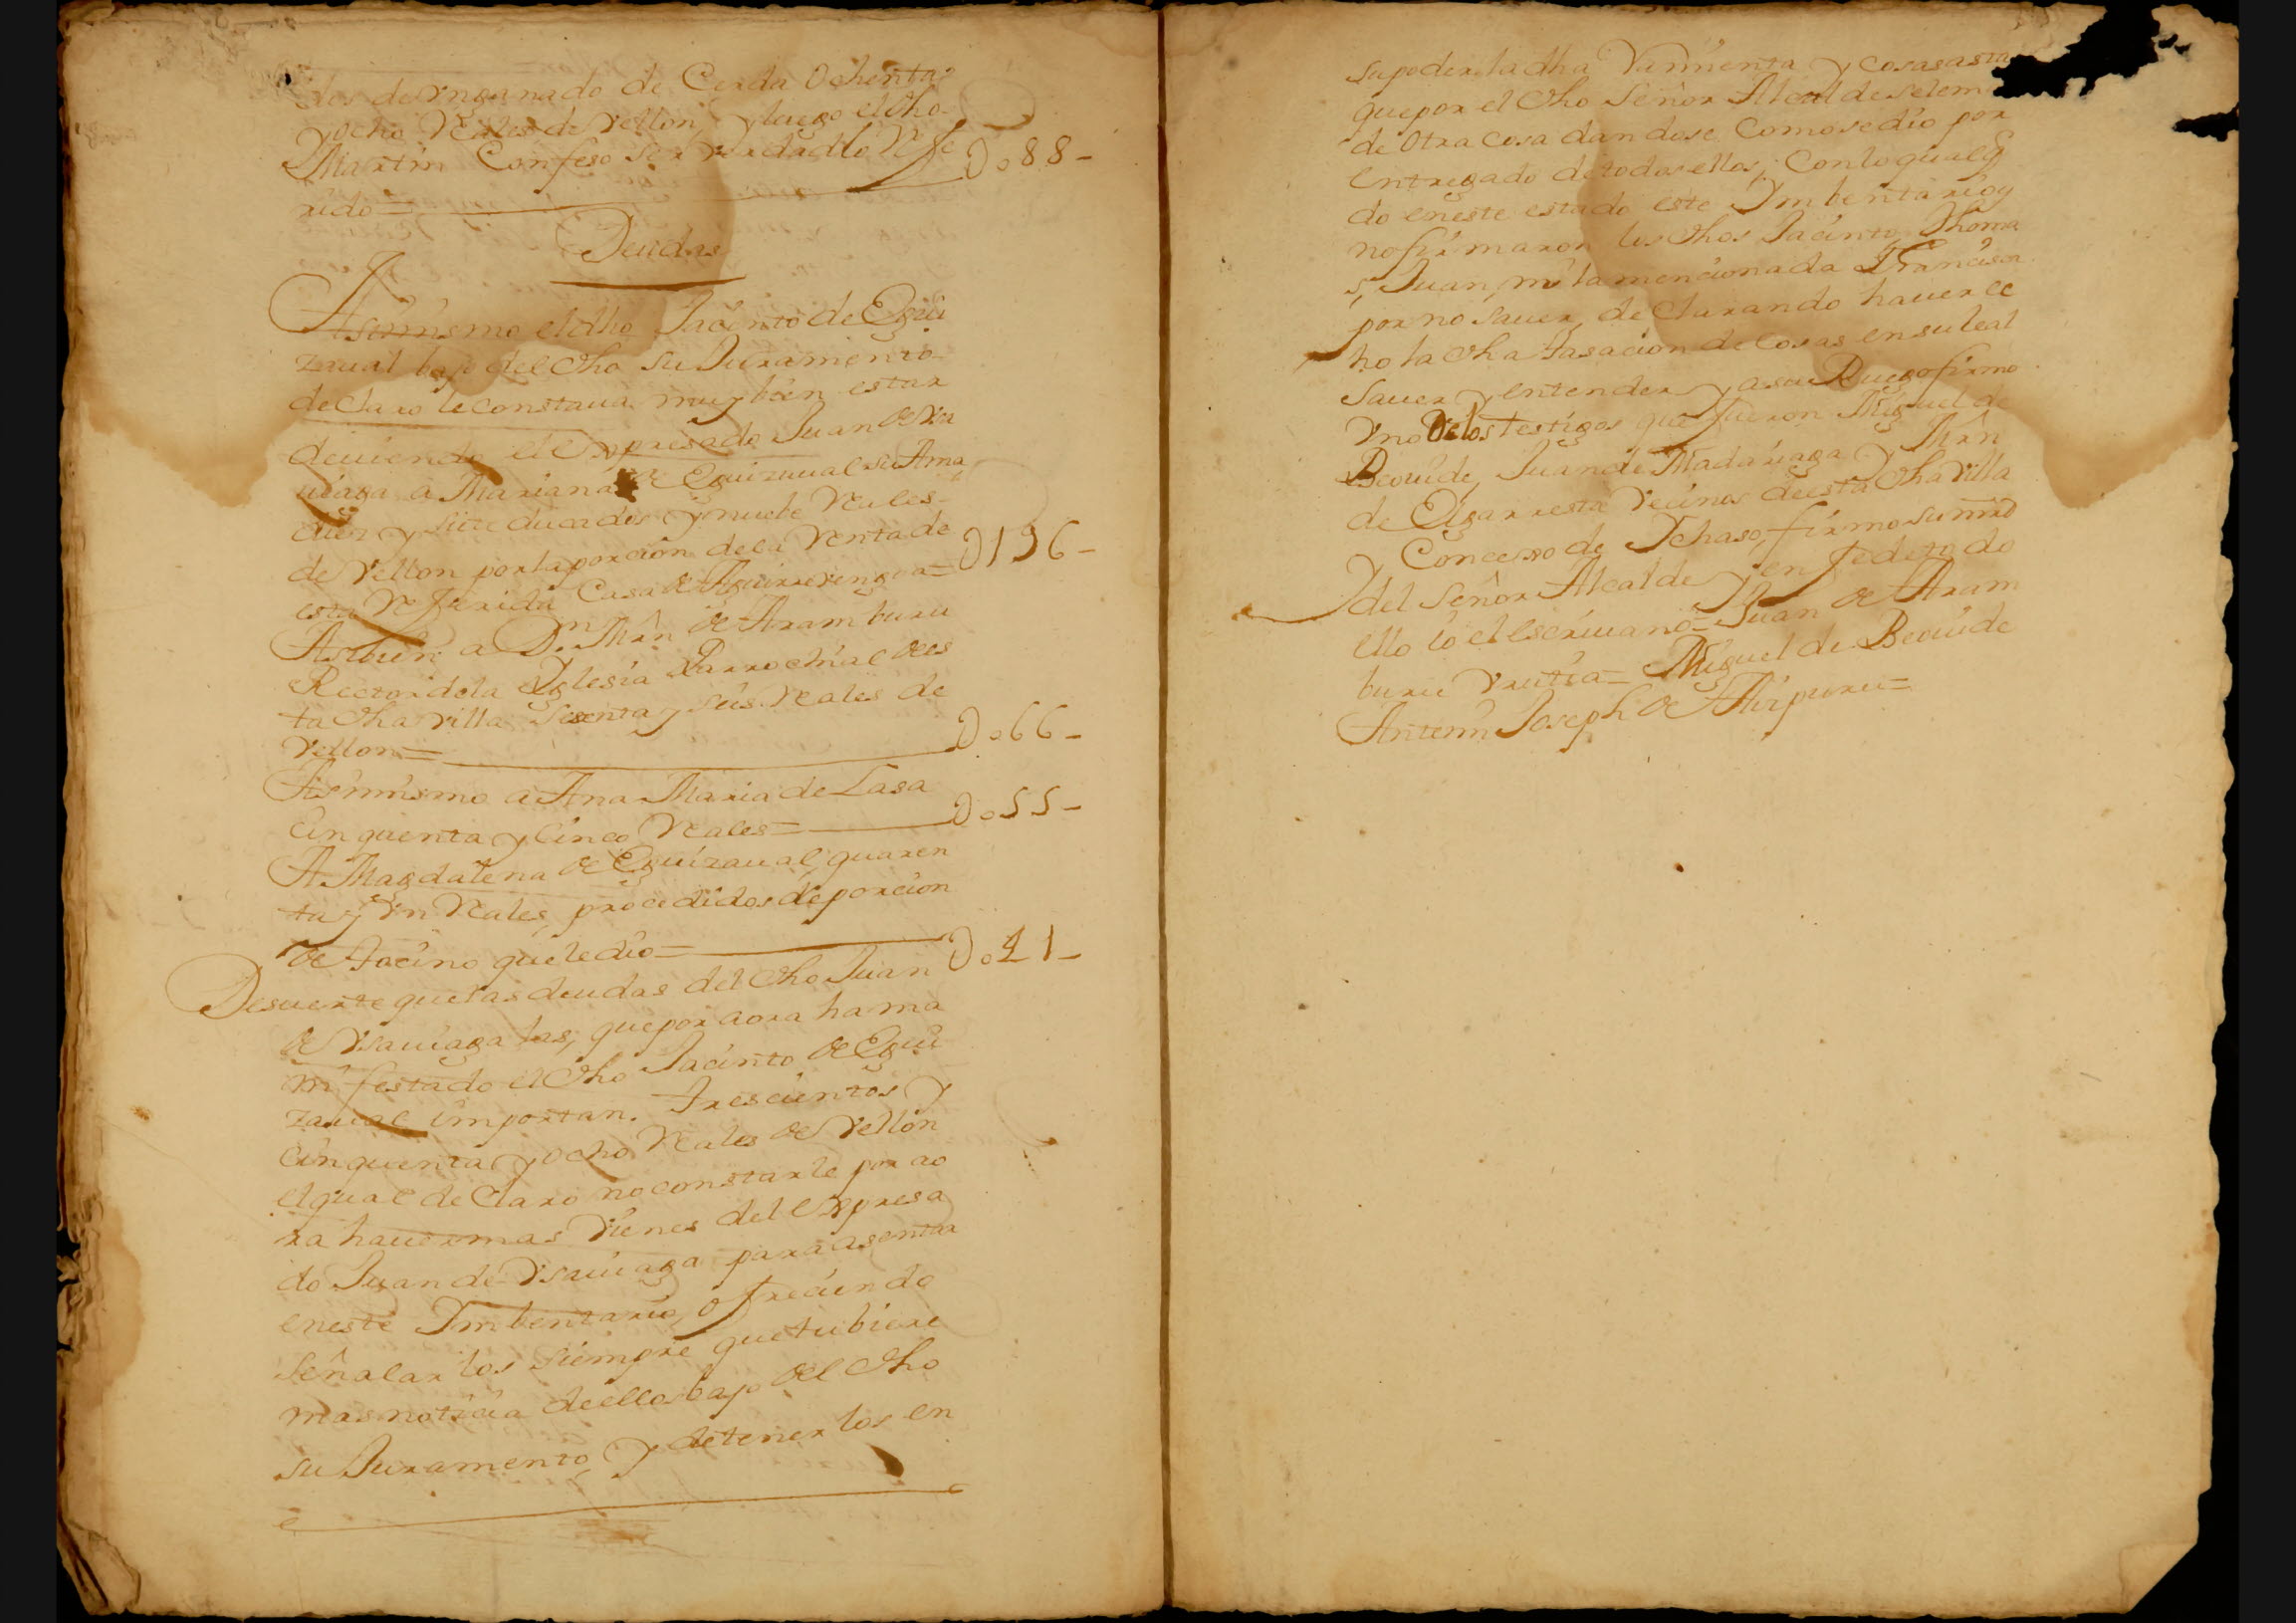 dos de Vnganado de Cerda Ochenta
y ocho Reales de Vellon, y luego el dho
Martin Confeso ser verdad lo Refe
rido= Do88-
Deudas
Asimismo el dho Jacinto de Egui
zaual bajo del dho su Juramento
declaro le constaua muy bien estar
deuiendo el expresado Juan de Vsa
uiaga a Mariana de Eguizaual su Ama
diez y siete ducados y nuebe Reales
de Vellon por la porcion de la Renta de
esta Referida Casa de Aguirrerengoa= D196-
Asibien a Dn. Mrn de Aramburu
Rector de la Yglesia Parrochial de es
ta dha villa Sesenta y seis Reales de
Vellon= Do66-
Asimismo a Ana Maria de Lasa
Cinquenta y Cinco Reales= Do55-
A Magdalena de Eguizaual, quaren
ta y Vn Reales, procedidos de porcion
de tocino que le dio= Do41-
De suerte que las deudas del dho Juan
de Vsauiaga las, que por aora ha ma
nifestado el dho Jacinto de Egui
zaual importan. Trescientos y
Cinquenta y ocho Reales de Vellon
el qual declaro no constarle por ao
ra hauer mas Vienes del expresa
do Juan de Vsauiaga para asentar
en este Imbentario, ofreciendo
señalarlos siempre que tubiere
mas noticia de ellos bajo del dho
su Juramento, y detenerlos en
su poder la dha Varmenta y cosas asta
que por el dho Señor Alcalde sele m
de Otra cosa dandose como se dio por
entregado de todos ellos; Con lo qual q
do en este estado este Imbentario y
no firmaron los dhos Jacinto, Thoma
s, Juan, ni la mencionada Francisca
por no sauer, declarando hauer ec
ho la dha tasacion de Cosas en su leal
sauer y entender y a su Ruego firmo
Vno de los testigos que fueron Miguel de
Beouide, Juan de Madariaga y Mrn
de Elgarresta Vecinos de esta dha Villa
y Concejo de Ychaso, firmo su mrd
del Señor Alcalde y en fe de todo
ello io el escriuano= Juan de Aram
buru Vrutia= Miguel de Beouide
Antemi Joseph de Alirpuru=